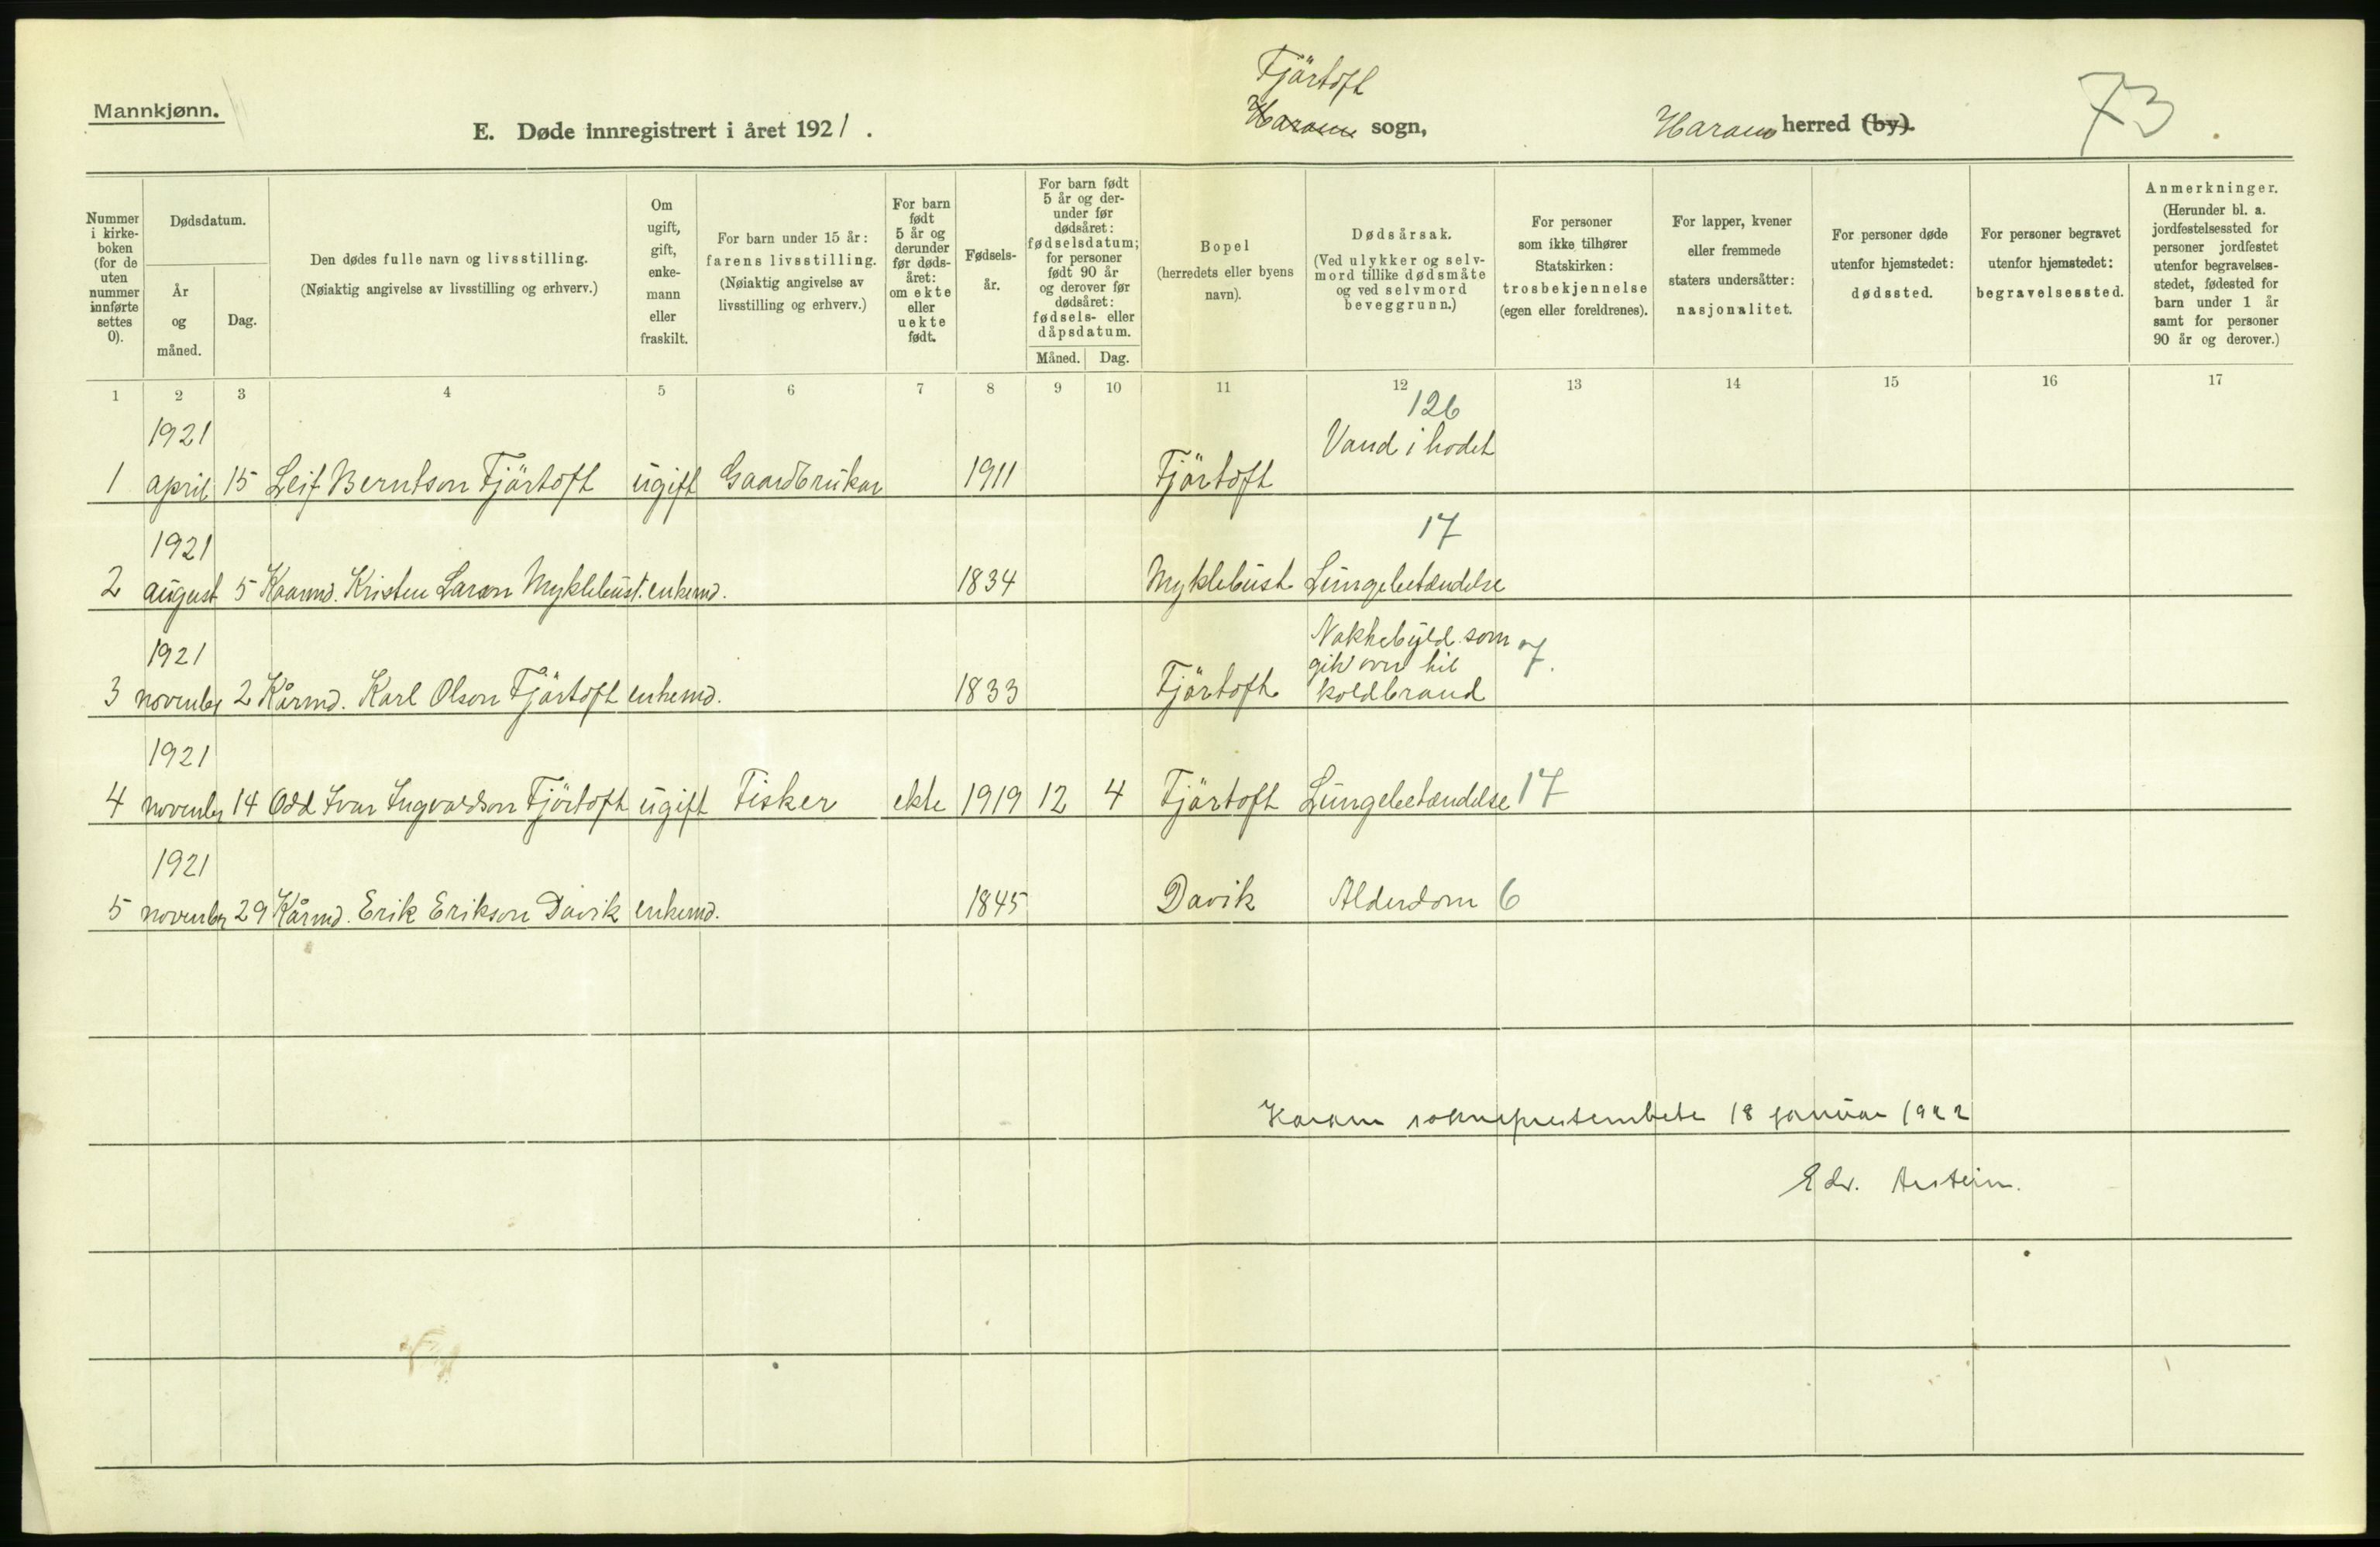 Mannkjønn.
E. Døde innregistrert i året 1921.
Fjärtoft
Haram sogn,
Haram herred (by).
73
Nummer i kirke-boken (for de uten nummer innførte settes 0).
Dødsdatum.
År og måned.
Dag.
Den dødes fulle navn og livsstilling.
(Nøiaktig angivelse av livsstilling og erhverv.)
Om ugift, gift, enke-mann eller fraskilt.
For barn under 15 år: farens livsstilling.
(Nøiaktig angivelse av livsstilling og erhverv.)
For barn født 5 år og derunder før døds-året: om ekte eller uekte født.
Fødsels-år.
For barn født 5 år og der-under før dødsåret: fødselsdatum; for personer født 90 år og derover før dødsåret: fødsels- eller dåpsdatum.
Måned. Dag.
Bopel (herredets eller byens navn).
Dødsårsak.
(Ved ulykker og selv-mord tillike dødsmåte og ved selvmord beveggrunn.)
For personer som ikke tilhører Statskirken: trosbekjennelse (egen eller foreldrenes).
For lapper, kvener eller fremmede staters undersåtter: nasjonalitet.
For personer døde utenfor hjemstedet: dødssted.
For personer begravet utenfor hjemstedet: begravelsessted.
Anmerkninger.
(Herunder bl. a. jordfestelsessted for personer jordfestet utenfor begravelses-stedet, fødested for barn under 1 år samt for personer 90 år og derover.)
1 2 3 4 5 6 7 8 9 10 11 12 13 14 15 16 17
1921 126
Vand i hodet
1 april 15 Leif Berntson Fjärtoft ugift Gaardbrukar 1911 Fjärtoft
1921 17
2 august 5 Kaarmd. Kristen Larsen Myklebust. enkemd. 1834 Myklebust Lungebetændelse
1921 Nakkebyld som 7.
gik over til
3 november 2 Kårmd. Karl Olson Fjärtoft enkemd. 1833 Fjärtoft koldbrand
1921
4 november 14 Odd Ivar Ingvaldson Fjärtoft ugift Fisker ekte 1919 12 4 Fjärtoft Lungebetændelse 17
1921
5 november 29 Kårmd. Erik Erikson Davik enkemd. 1845 Davik Alderdom 6
Haram sokneprestembete 18 januar 1922
Edv.